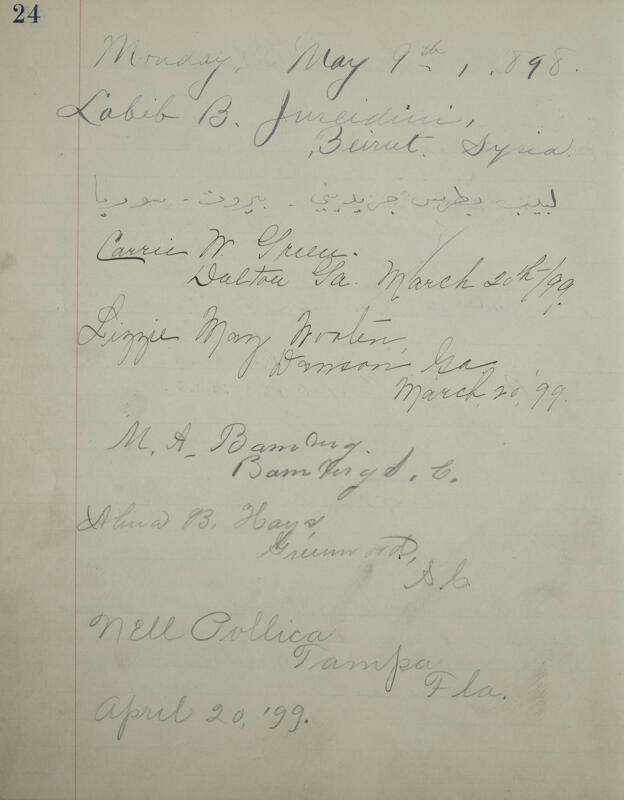 24
Monday, May 9th, 1898.
Labib B. Jureidini,
Beirut. Syria.
لبيب بطرس جريديني - بيروت - سوريا
Carrie W. Green.
Dalton Ga. March 20th/99.
Lizzie May Wooten,
Dawson, Ga
March, 20, '99.
M. A. Bamberg.
Bamberg S. C.
Alma B. Hays
Greenwood,
S. C.
Nell Pollica
Tampa
Fla.
April 20, '99.